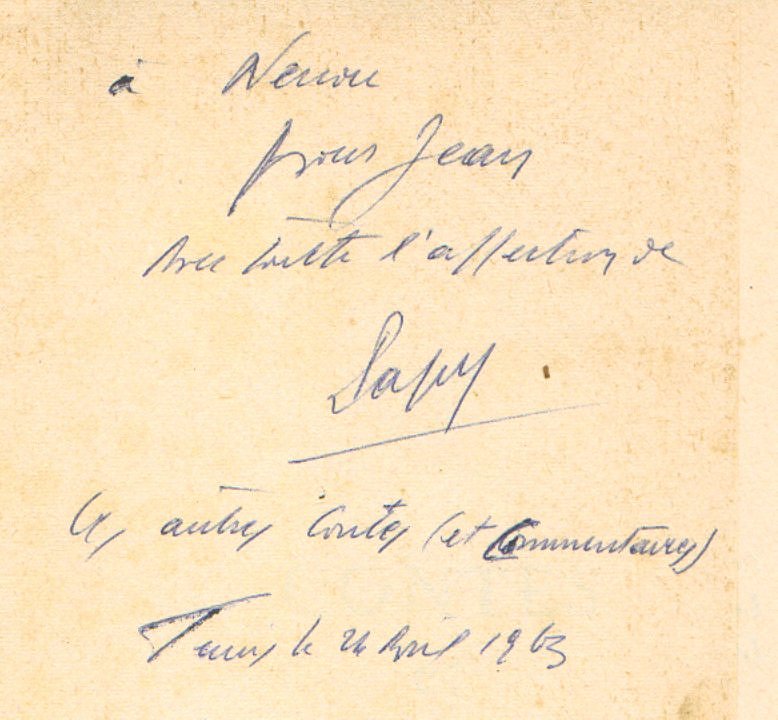 à Nenou
pour Jean
Avec toute l'affection de
Papy
Ces autres Contes (et Commentaires)
Tunis le 24 Avril 1963